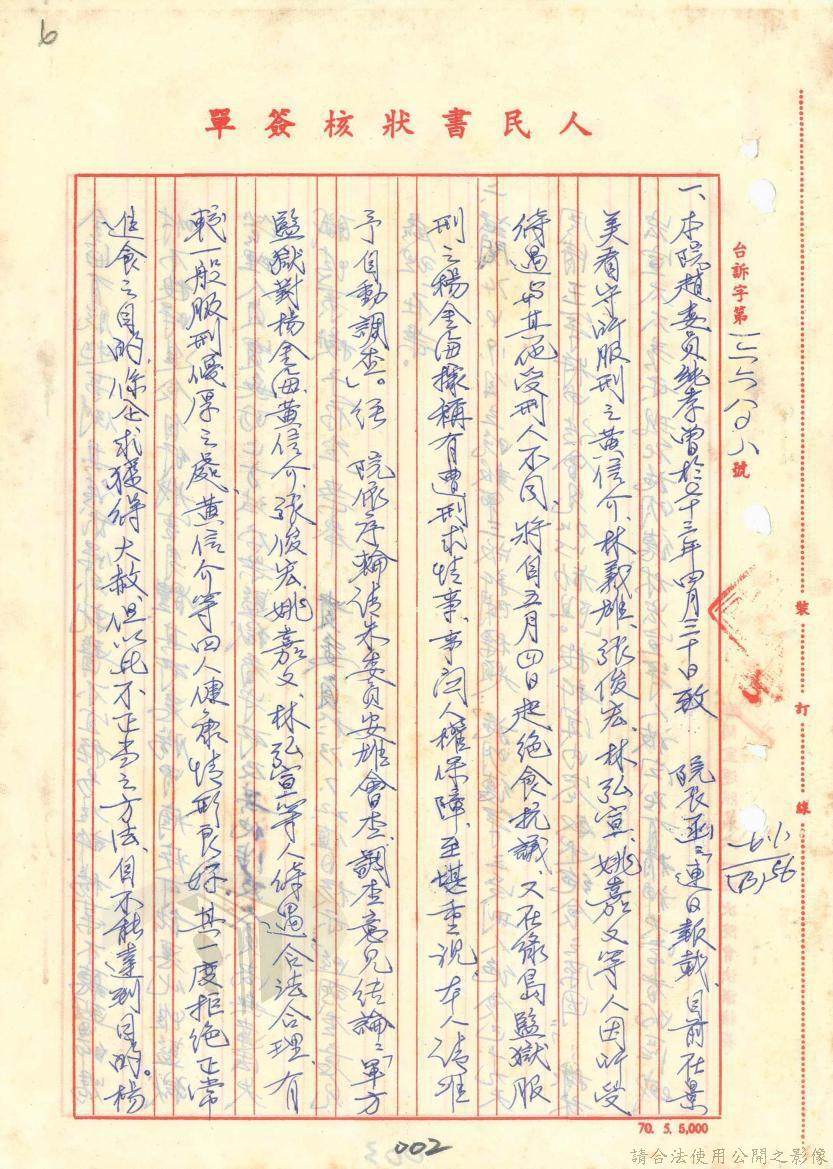 6
人民書狀核簽單
台訴字第一三六八〇八號
一、本院趙委員純孝曾於七十三年四月三十日致 院長函：「連日報載、目前在景
美看守所服刑之黃信介、林義雄、張俊宏、林弘宣、姚嘉文等人因所受
待遇與其他受刑人不同、將自五月四日起絕食抗議、又在綠島監獄服
刑之楊金海據稱有遭刑求情事、事關人權保障、至堪重視、本人請准
予自動調查」。經 院依序輪請朱委員安雄會查、調查意見結論：「軍方
監獄對楊金海、黃信介、張俊宏、姚嘉文、林弘宣等人待遇、合法合理、有
較一般服刑優厚之處、黃信介等四人健康情形良好、其一度拒絕正常
進食之目的、係企求獲得大赦、但以此不正當之方法、自不能達到目的。楊
裝
訂
線
70. 5. 5,000
002
請合法使用公開之影像